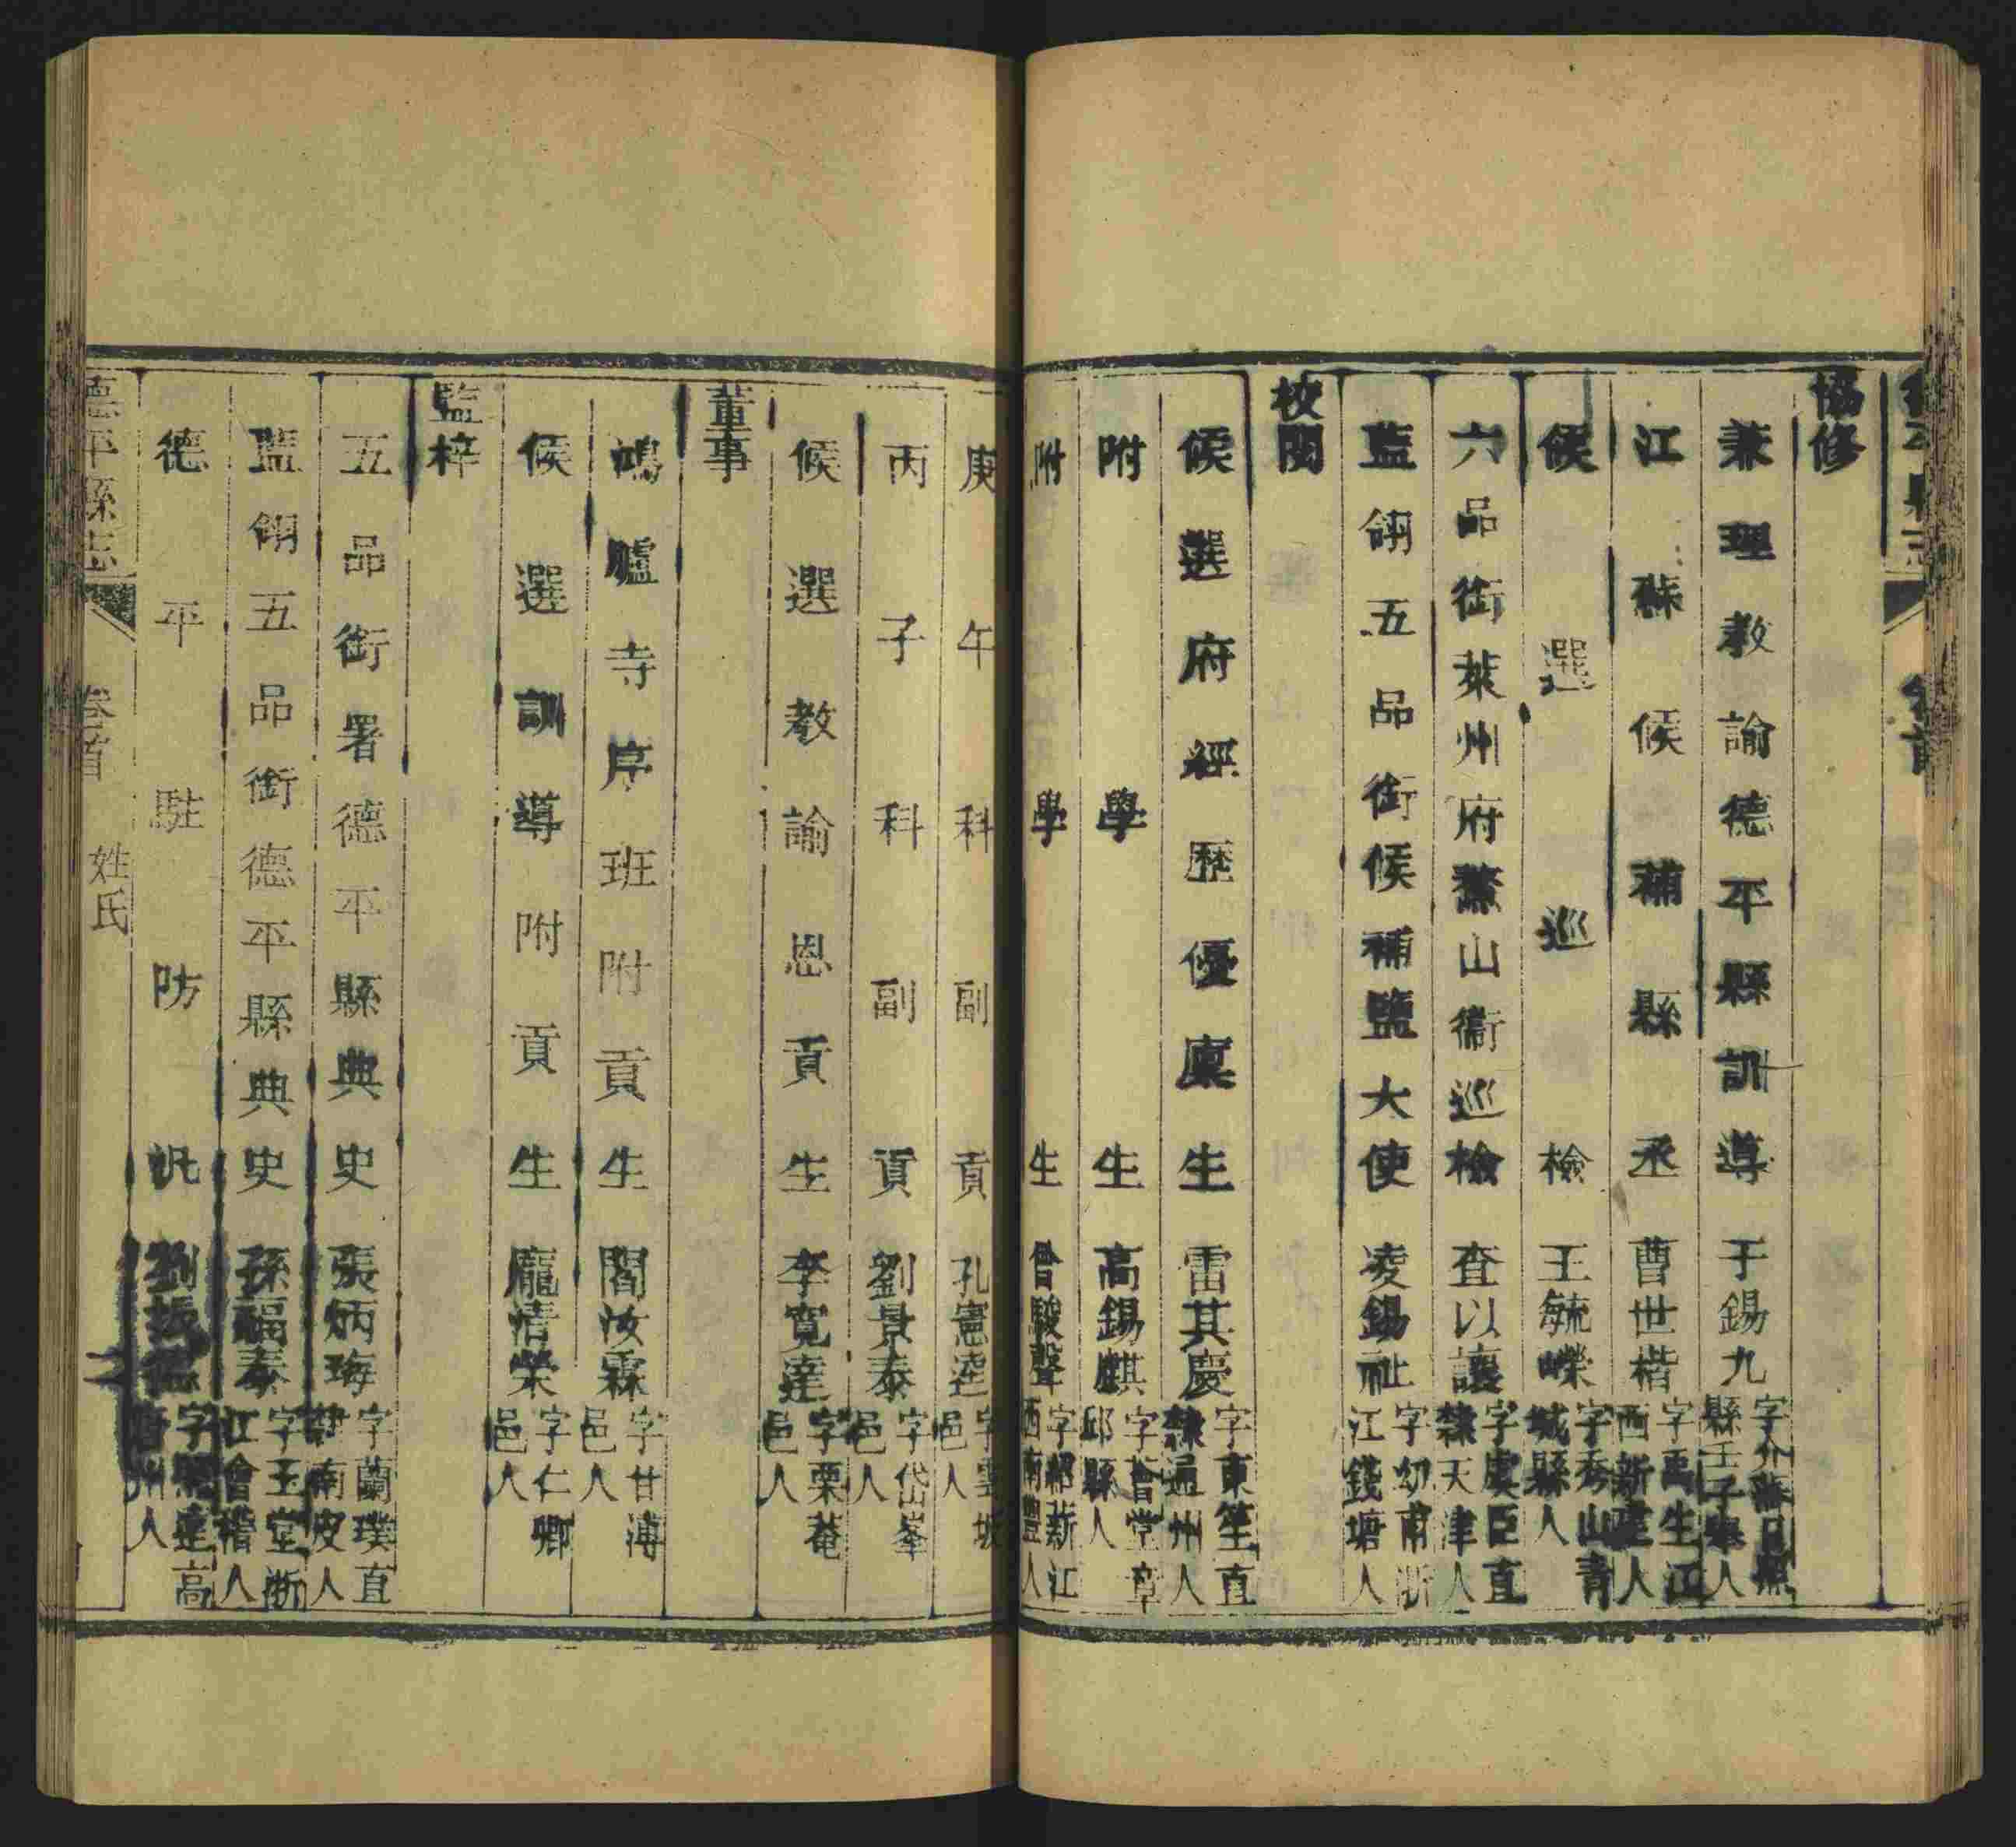 德平縣志 卷首
協修
兼理教諭德平縣訓導于錫九字介蕃日照縣壬子舉人
江蘇候補縣丞曹世楷字禹生江西新建人
候選巡檢王毓嶸字秀山青城縣人
六品銜萊州府鰲山衞巡檢查以讓字虞臣直隸天津人
藍翎五品銜候補鹽大使凌錫祉字幼甫浙江錢塘人
校閱
候選府經歷優廩生雷其慶字東笙直隸通州人
附學生高錫麒字薈堂章邱縣人
附學生曾駿聲字紹薪江西南豐人
庚午科副貢孔憲逵字雲坡邑人
丙子科副貢劉景泰字岱峯邑人
候選教諭恩貢生李寬達字栗菴邑人
董事
鴻臚寺序班附貢生閻汝霖字甘溥邑人
候選訓導附貢生龐清榮字仁卿邑人
監梓
五品銜署德平縣典史張炳海字蘭璞直隸南皮人
藍翎五品銜德平縣典史孫福泰字玉堂浙江會稽人
德平駐防汛劉振德字達高唐州人
德平縣志 卷首 姓氏 二